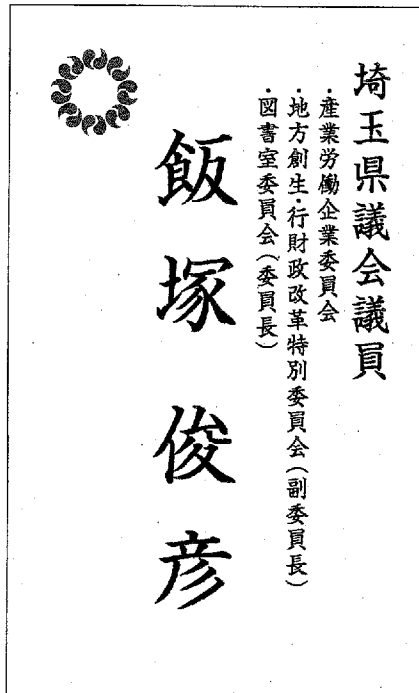 埼玉県議会議員
・産業労働企業委員会
・地方創生・行財政改革特別委員会(副委員長)
・図書室委員会(委員長)
飯塚俊彦